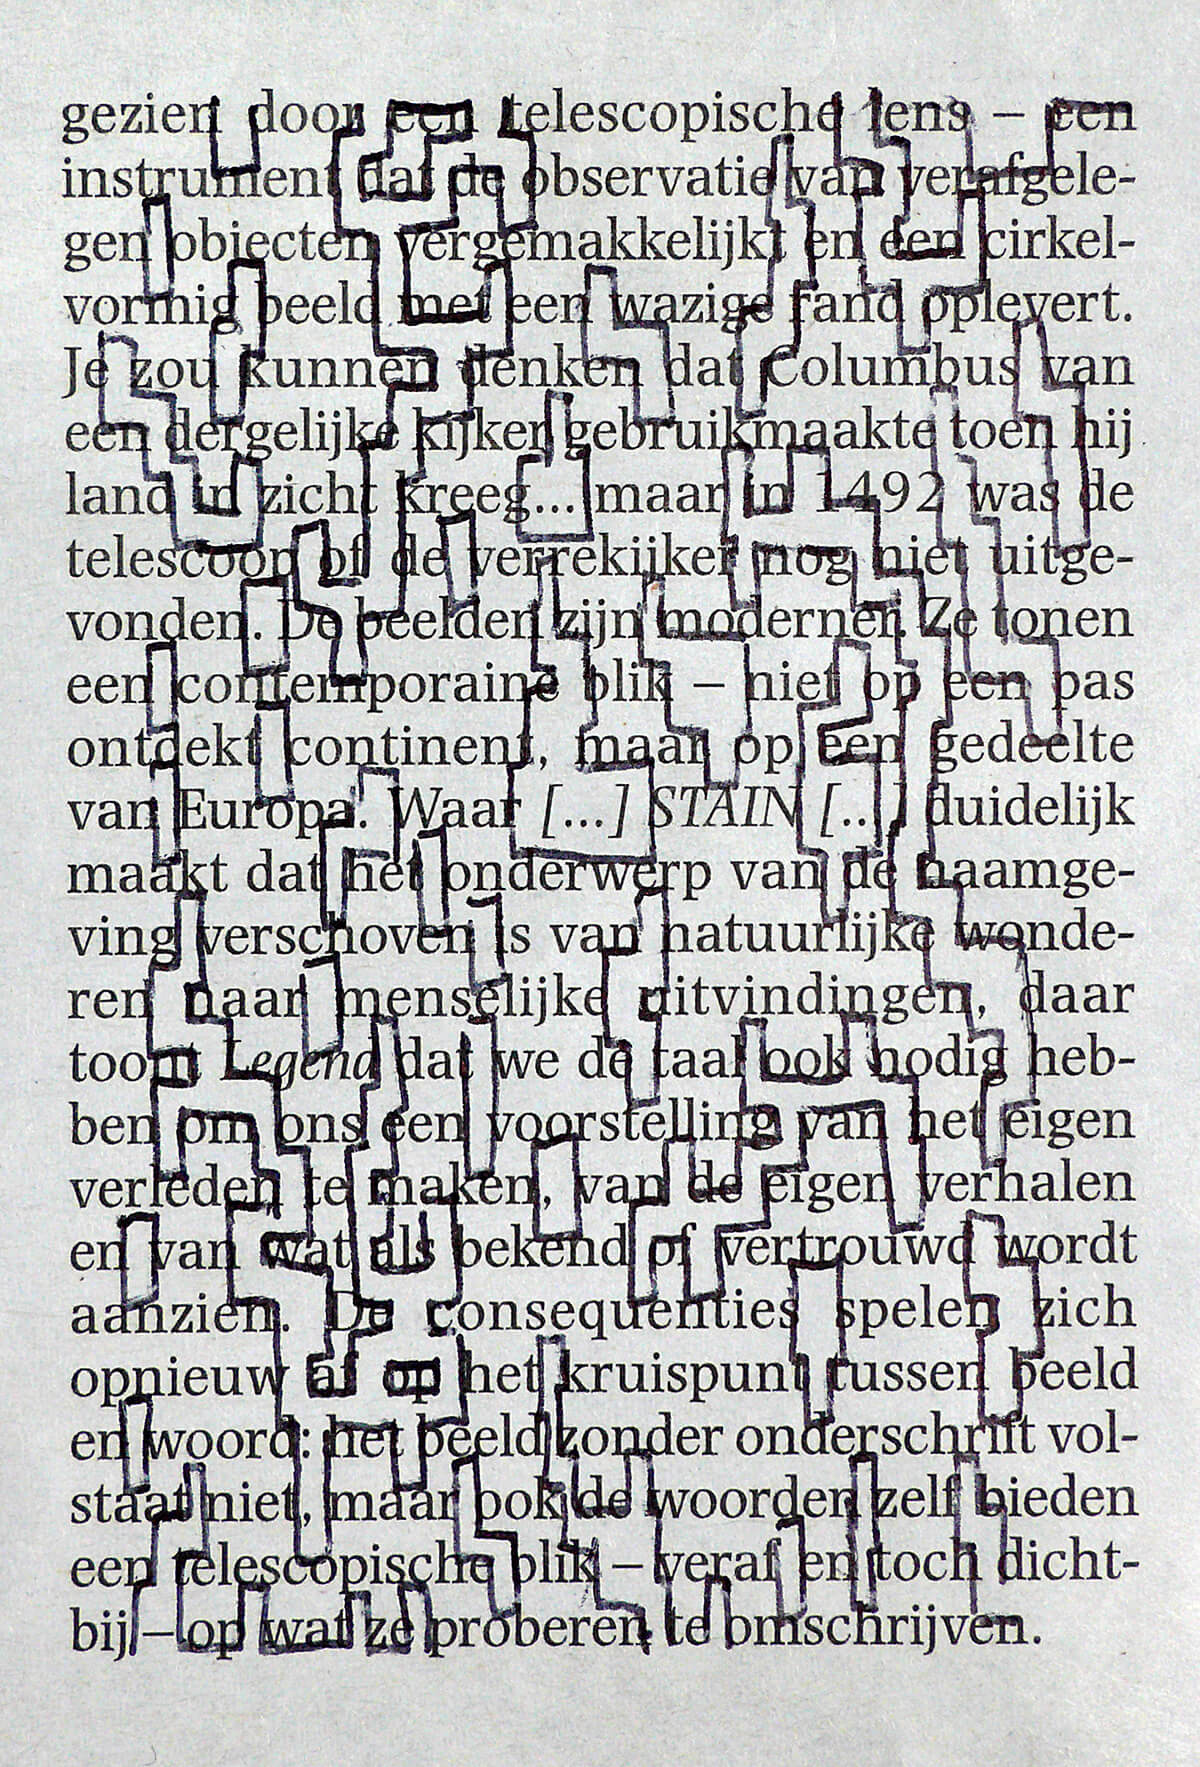 gezien door een telescopische lens – een
instrument dat de observatie van verafgele-
gen objecten vergemakkelijkt en een cirkel-
vormig beeld met een wazige rand oplevert.
Je zou kunnen denken dat Columbus van
een dergelijke kijker gebruikmaakte toen hij
land in zicht kreeg... maar in 1492 was de
telescoop of de verrekijker nog niet uitge-
vonden. De beelden zijn moderner. Ze tonen
een contemporaine blik – niet op een pas
ontdekt continent, maar op een gedeelte
van Europa. Waar [...] STAIN [...] duidelijk
maakt dat het onderwerp van de naamge-
ving verschoven is van natuurlijke wonde-
ren naar menselijke uitvindingen, daar
toont Legend dat we de taal ook nodig heb-
ben om ons een voorstelling van het eigen
verleden te maken, van de eigen verhalen
en van wat als bekend of vertrouwd wordt
aanzien. De consequenties spelen zich
opnieuw af op het kruispunt tussen beeld
en woord: het beeld zonder onderschrift vol-
staat niet, maar ook de woorden zelf bieden
een telescopische blik – veraf en toch dicht-
bij – op wat ze proberen te omschrijven.